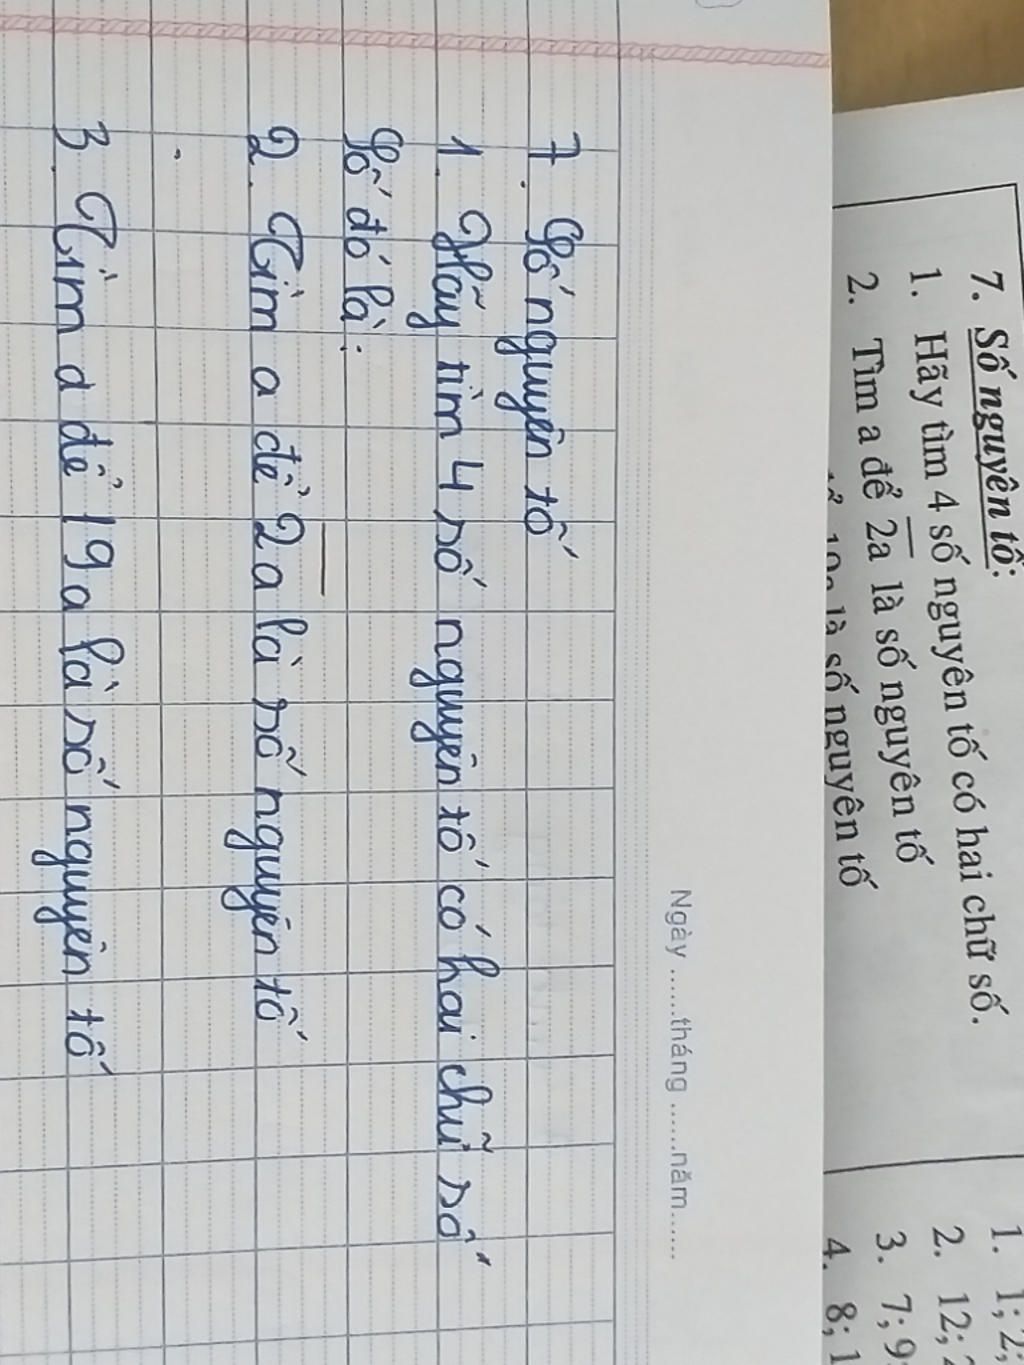 7. Số nguyên tố:
1. Hãy tìm 4 số nguyên tố có hai chữ số.
2. Tìm a để 2a là số nguyên tố
19a là số nguyên tố
1. 1; 2;
2. 12;
3. 7; 9
4. 8; 1
Ngày ......tháng ......năm......
7. Số nguyên tố
1. Hãy tìm 4 số nguyên tố có hai chữ số
Số đó là:
2. Tìm a để 2a là số nguyên tố
3. Tìm a để 19a là số nguyên tố